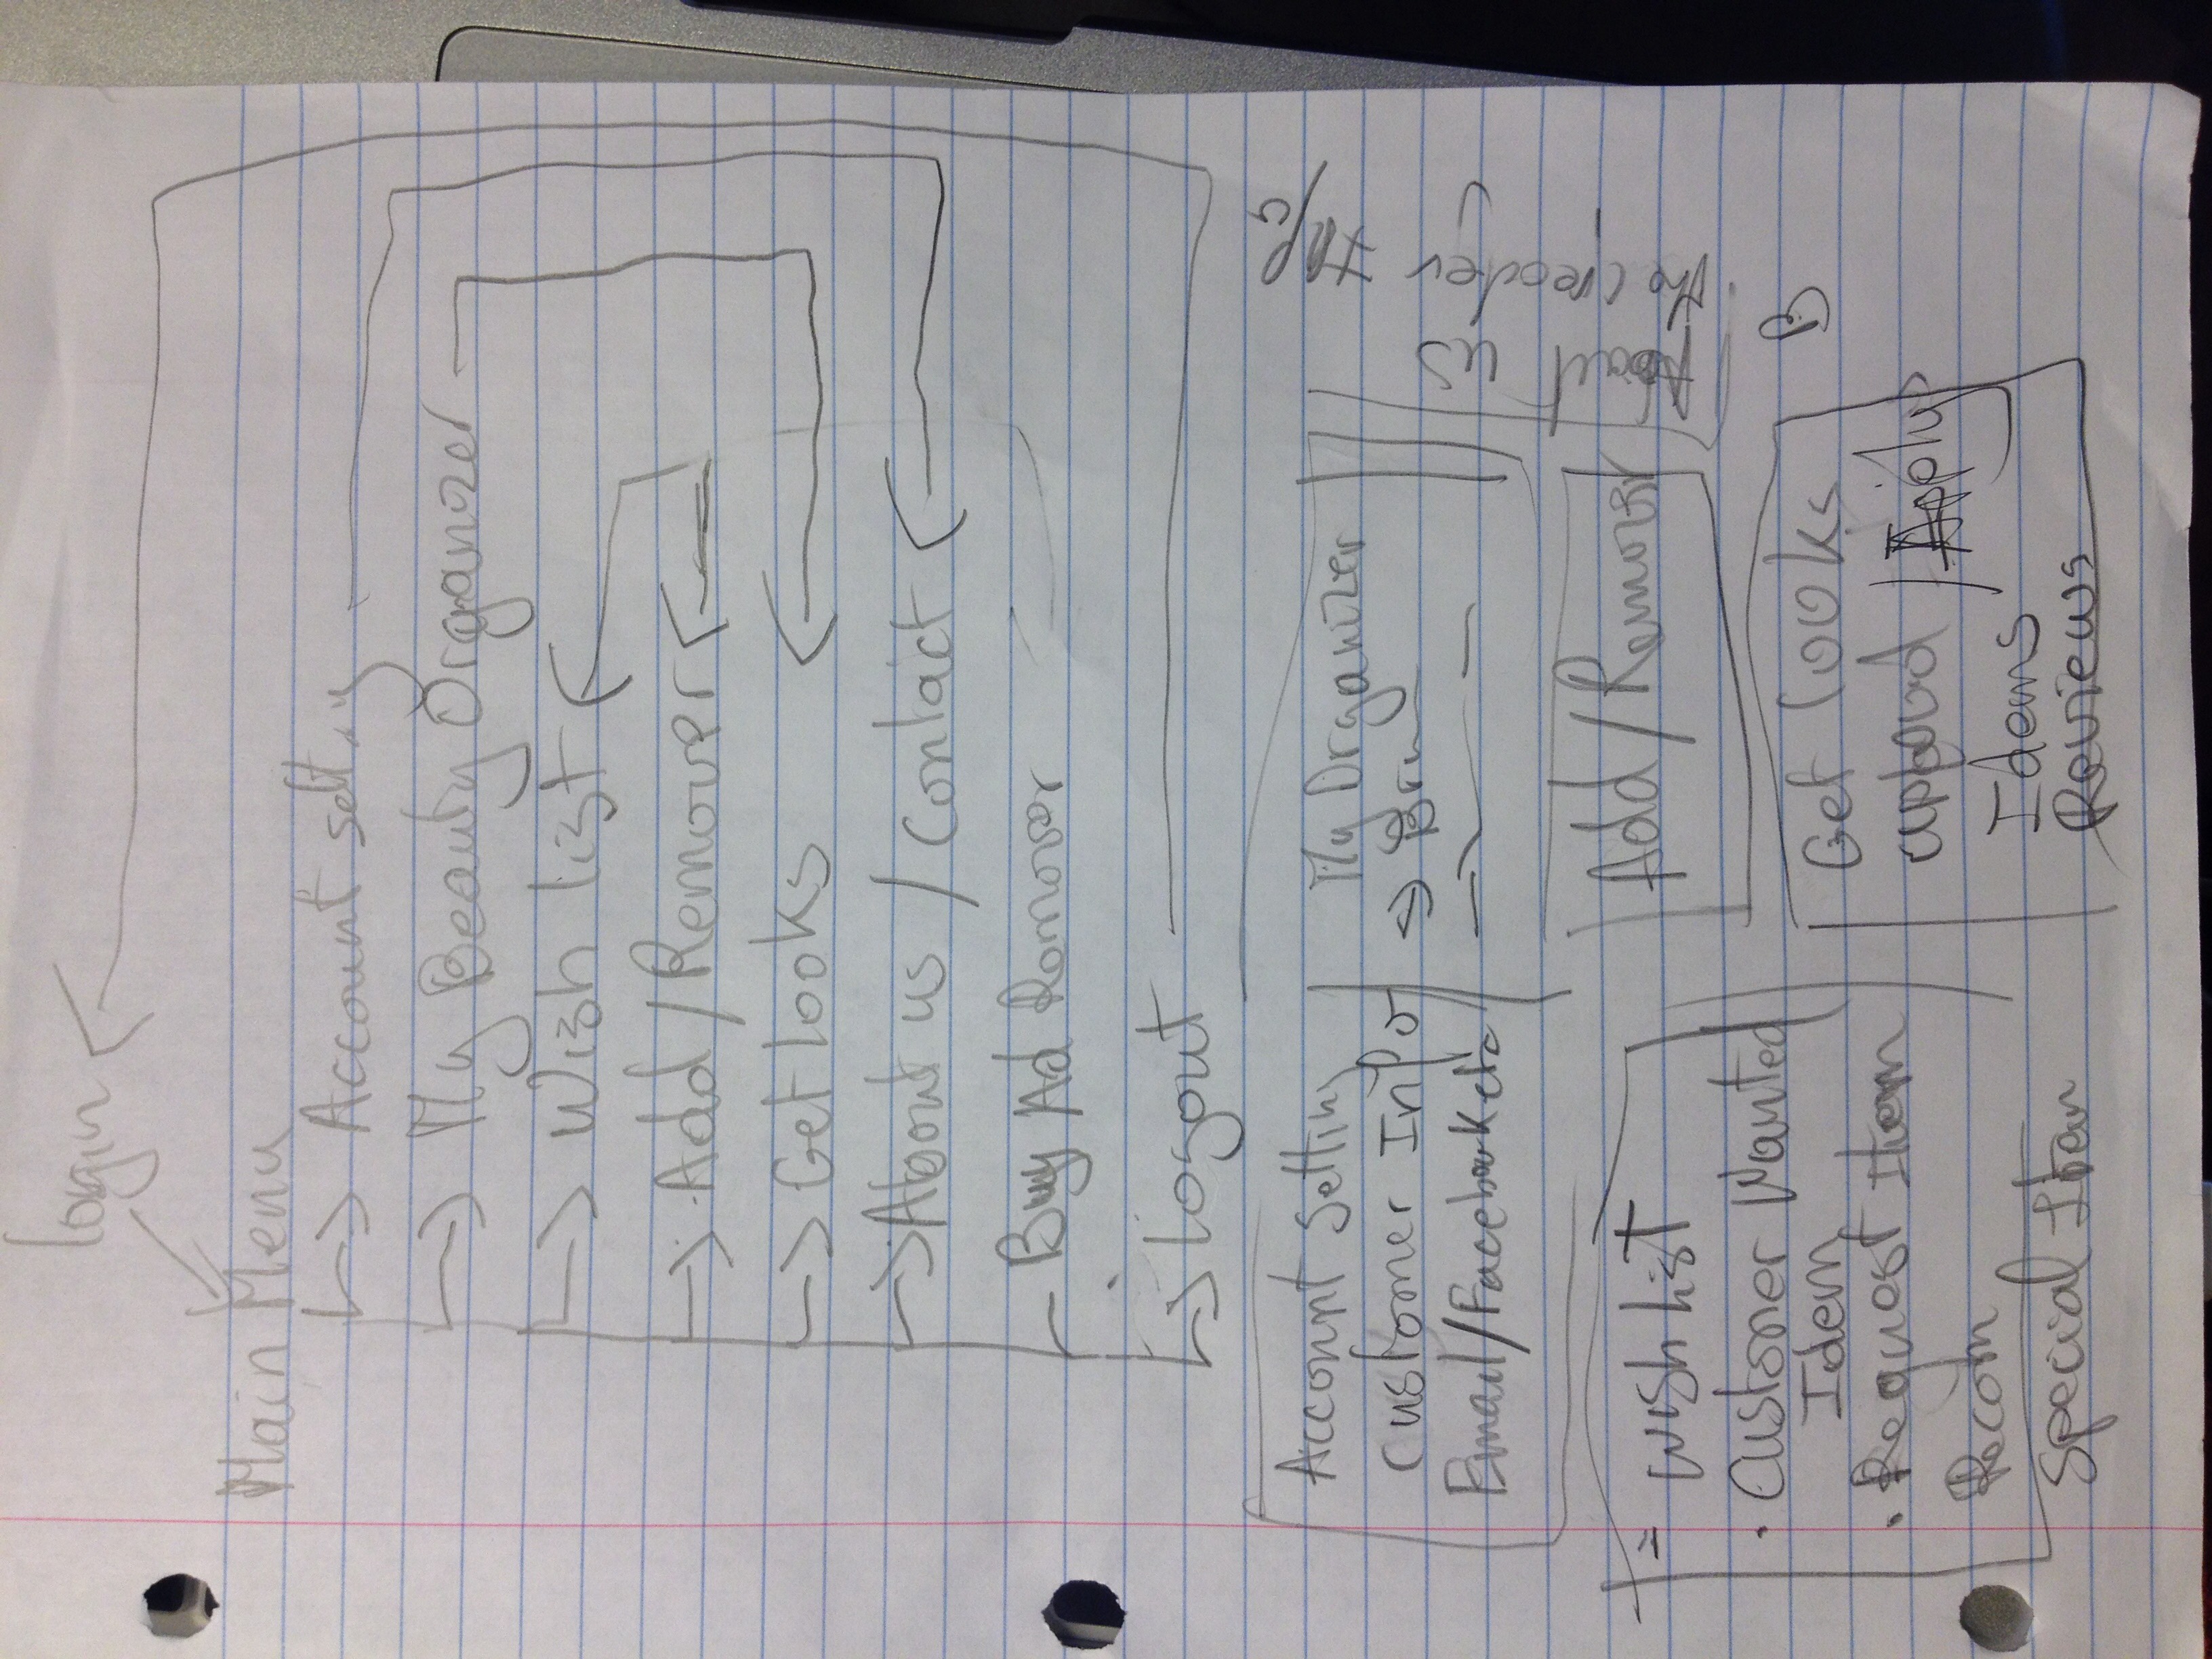 login
Main Menu
Account setting
My Beauty Organizer
Wish list
Add / Remover
Get looks
About us / Contact
Buy Ad Remover
logout
Account Setting
Customer Info
Email/Facebook etc
My Organizer
About us
the Creader Info
Add / Remover
Wish List
Customer Wanted
Idem
Request Item
Recom
Special Item
Get looks
upload / Apply
Idems
Reviews
B